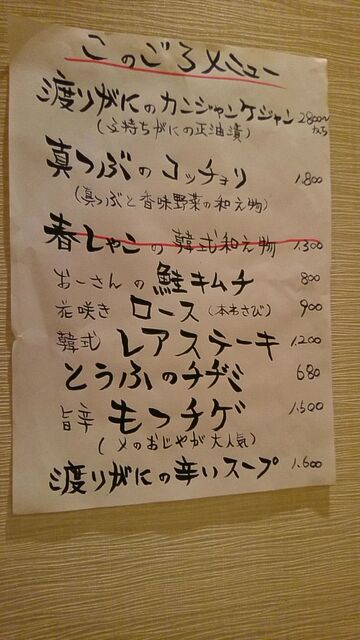 このごろメニュー
渡りがにのカンジャンケジャン 2800〜
(子持ちがにの正油漬)
真つぶのコッチョリ 1,800
(真つぶと香味野菜の和え物)
春しゃこの韓式和え物 1,300
おーさんの鮭キムチ 800
花咲きロース(本わさび) 900
韓式レアステーキ 1,200
とうふのチヂミ 680
旨辛もつチゲ 1,500
(〆のおじやが大人気)
渡りがにの辛いスープ 1,600